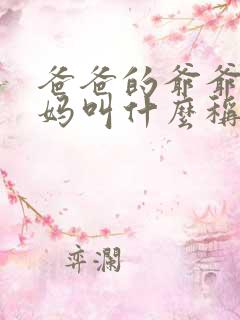 爸爸的爷爷
妈叫什麼稱
弈瀾